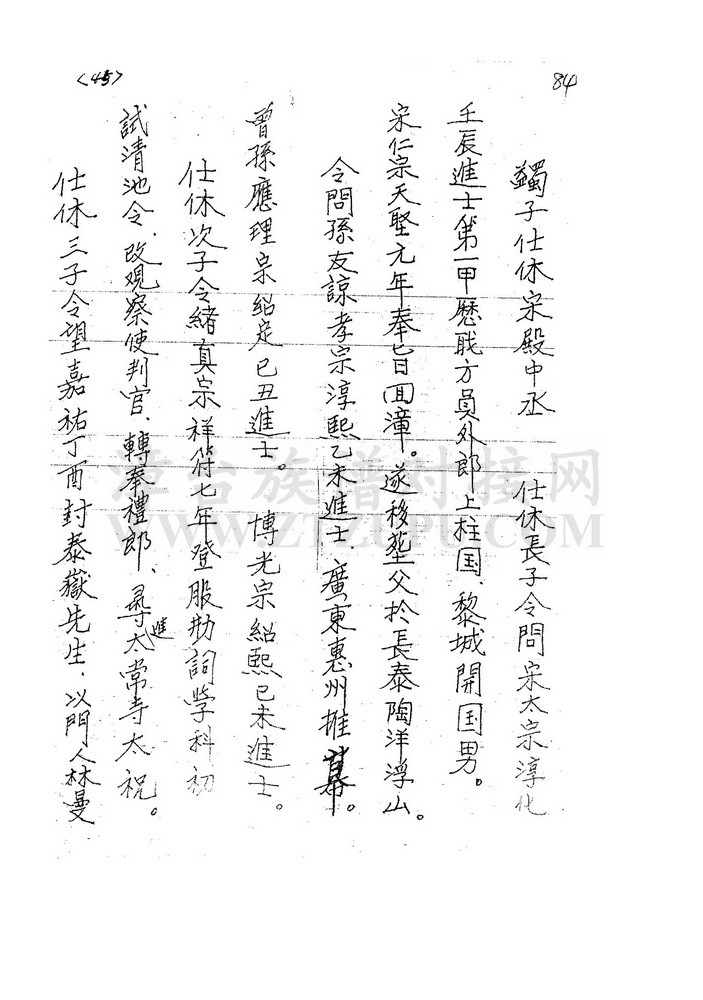 84
<45>
蠲子仕休宋殿中丞　仕休長子令問宋太宗淳化
壬辰進士第一甲歷職方員外郎上柱国、黎城開国男。
宋仁宗天聖元年奉旨回漳。遂移塟父於長泰陶洋浮山。
令問孫友諒孝宗淳熙乙未進士、廣東惠州推幕。
曾孫應理宗紹定已丑進士。　博光宗紹熙已未進士。
仕休次子令緒真宗祥符七年登服勤詞學科初
試清池令、改觀察使判官、轉奉禮郎、尋進太常寺太祝。
仕休三子令望嘉祐丁酉封泰嶽先生、以門人林曼
漳台族譜对接网
WWW.ZTZUPU.COM